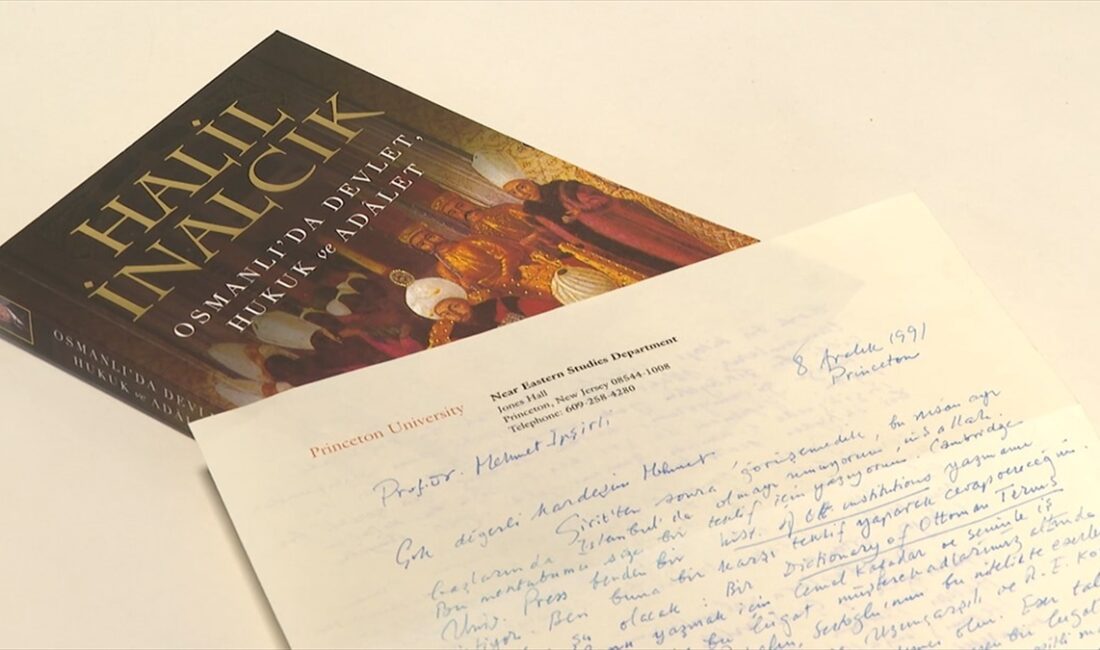 HALİL
İNALCIK
OSMANLI'DA DEVLET,
HUKUK ve ADÂLET
OSMANLI'DA DEVL
HUKUK ve ADÂL
Princeton University
Near Eastern Studies Department
Jones Hall
Princeton, New Jersey 08544-1008
Telephone: 609-258-4280
8 Aralık 1991
Princeton
Prof. Dr. Mehmet İpşirli
Çok değerli kardeşim Mehmet
Girit'ten sonra görüşemedik, bu nisan ayı
başlarında İstanbul'da olmayı umuyorum, inşallah.
Bu mektubumu size bir teklif için yazıyorum. Cambridge
Univ. Press benden bir hist. of Ott. institutions yazmamı
istiyor. Ben buna bir karşı teklif yaparak cevap vereceğim.
şu olacak: Bir Dictionary of Ottoman Terms
yazmak için Cemal Kafadar ve seninle iş
bu lûgat müşterek adlarımız altında
Sertoğlu'nun bu nitelikte eserle
Uzunçarşılı ve R. E. Ko
olur. Eser
bir lûgat